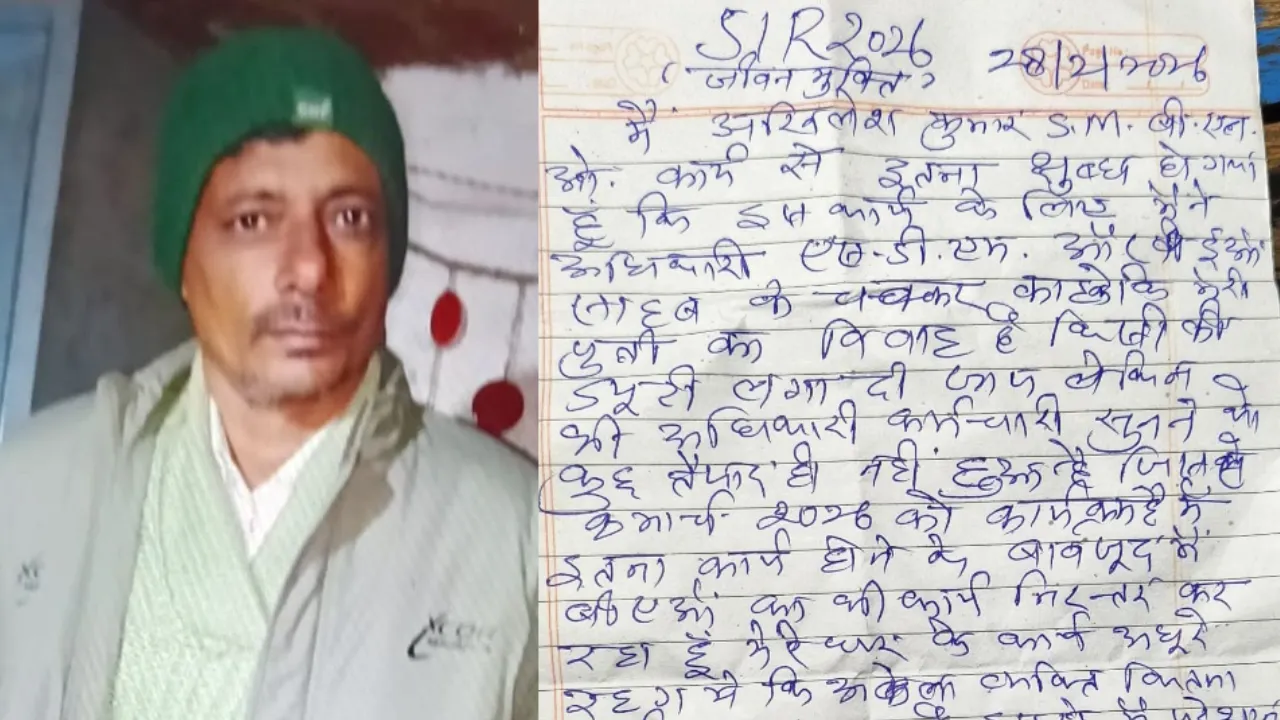 SIR 2026
(जीवन मुक्ति)
28/2/2026
मैं अखिलेश कुमार S.M. बी.एल.
ओ. कार्य से इतना क्षुब्ध हो गया
हूं कि इस कार्य के लिए मैंने
अधिकारी एस.डी.एम. और बीईओ
साहब के चक्कर काटे कि मेरी
पुत्री का विवाह है किसी की
ड्यूटी लगा दी जाय लेकिन
भी अधिकारी कर्मचारी सुनने को
कुछ तैयार ही नहीं हुआ है
मार्च 2026 को कार्यक्रम है मैं
इतना कार्य होने के बावजूद मैं
बीएलओ का भी कार्य निरन्तर कर
रहा हूं मेरे घर के कार्य अधूरे
रह गये कि अकेला व्यक्ति कितना